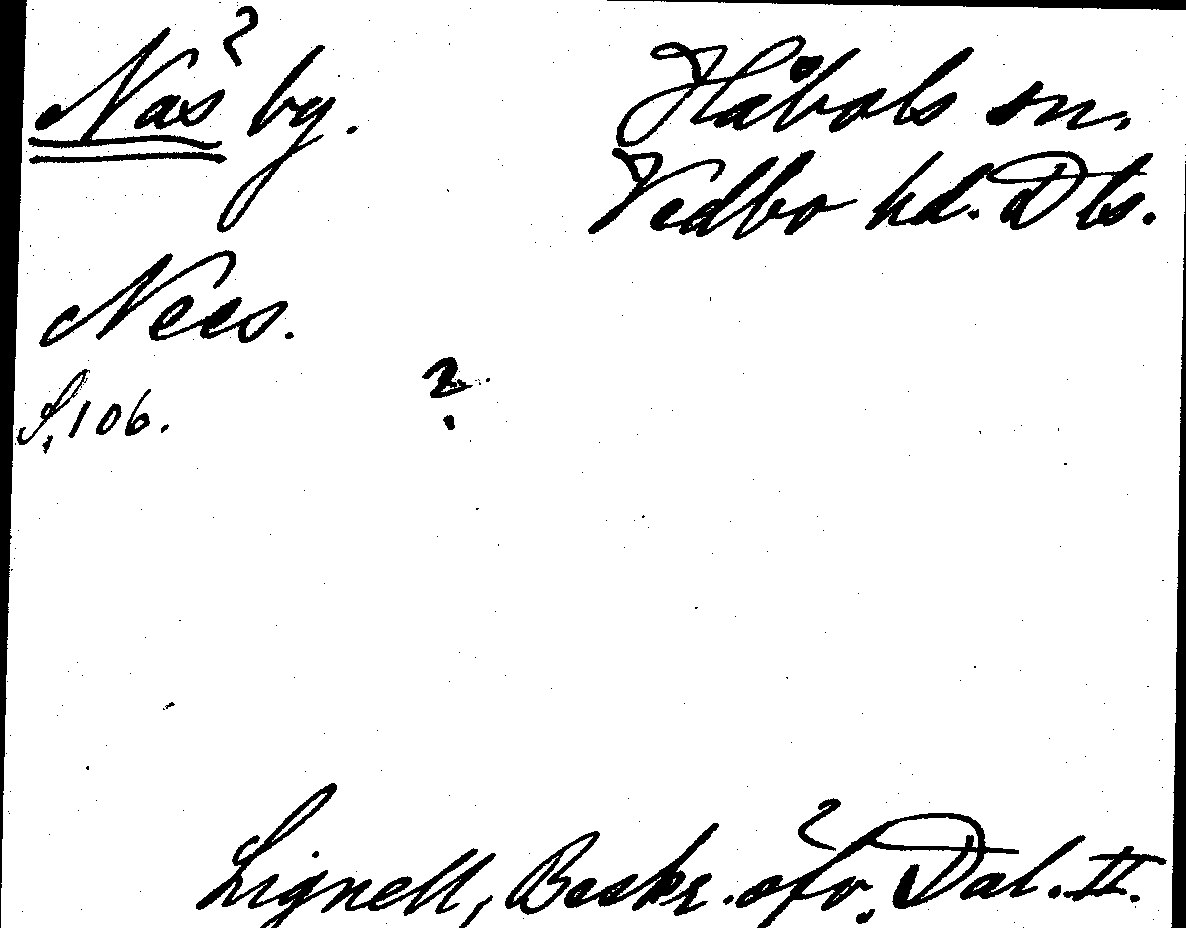 Näs by.
Håbols sn.
Vedbo hd. Dls.
Nees.
S, 106.
?
Lignell, Beskr. öfv. Dal. II.